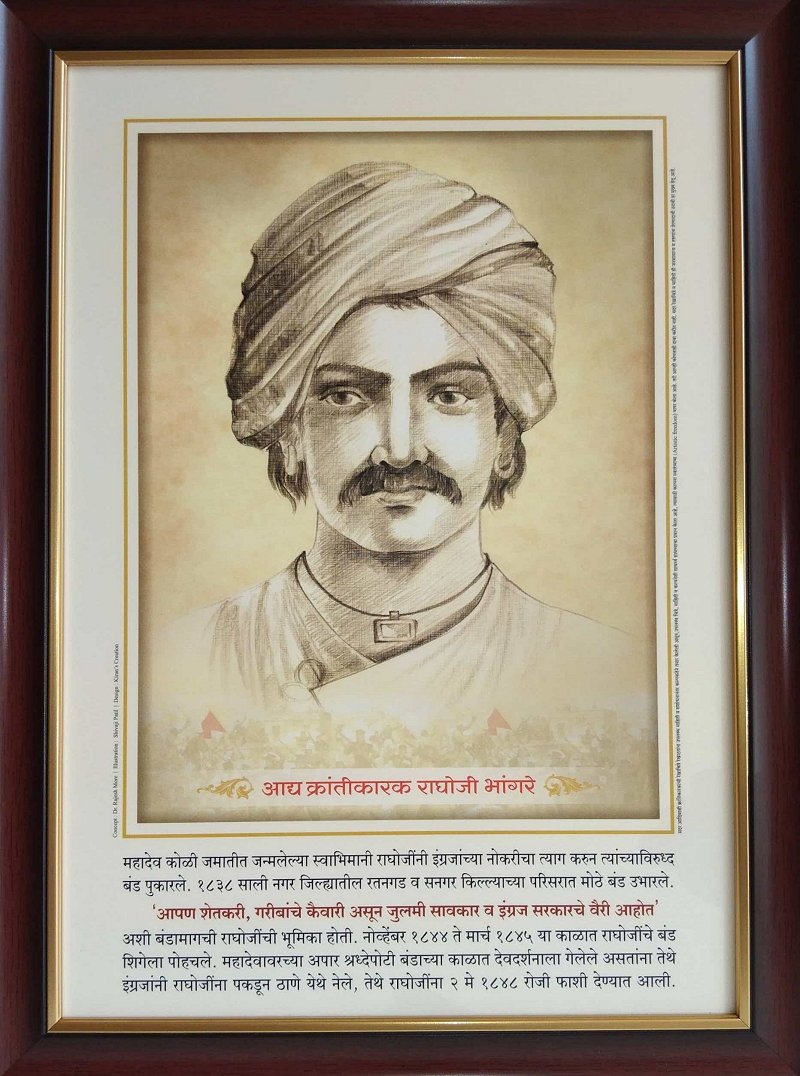 आद्य क्रांतीकारक राघोजी भांगरे
महादेव कोळी जमातीत जन्मलेल्या स्वाभिमानी राघोजींनी इंग्रजांच्या नोकरीचा त्याग करुन त्यांच्याविरुध्द
बंड पुकारले. १८३८ साली नगर जिल्ह्यातील रतनगड व सनगर किल्ल्याच्या परिसरात मोठे बंड उभारले.
‘आपण शेतकरी, गरीबांचे कैवारी असून जुलमी सावकार व इंग्रज सरकारचे वैरी आहोत’
अशी बंडामागची राघोजींची भूमिका होती. नोव्हेंबर १८४४ ते मार्च १८४५ या काळात राघोजींचे बंड
शिगेला पोहचले. महादेवावरच्या अपार श्रध्देपोटी बंडाच्या काळात देवदर्शनाला गेलेले असतांना तेथे
इंग्रजांनी राघोजींना पकडून ठाणे येथे नेले, तेथे राघोजींना २ मे १८४८ रोजी फाशी देण्यात आली.
Concept : Dr. Rajesh More | Illustration : Shivaji Patil | Design : Kiran's Creation
(Artistic freedom)